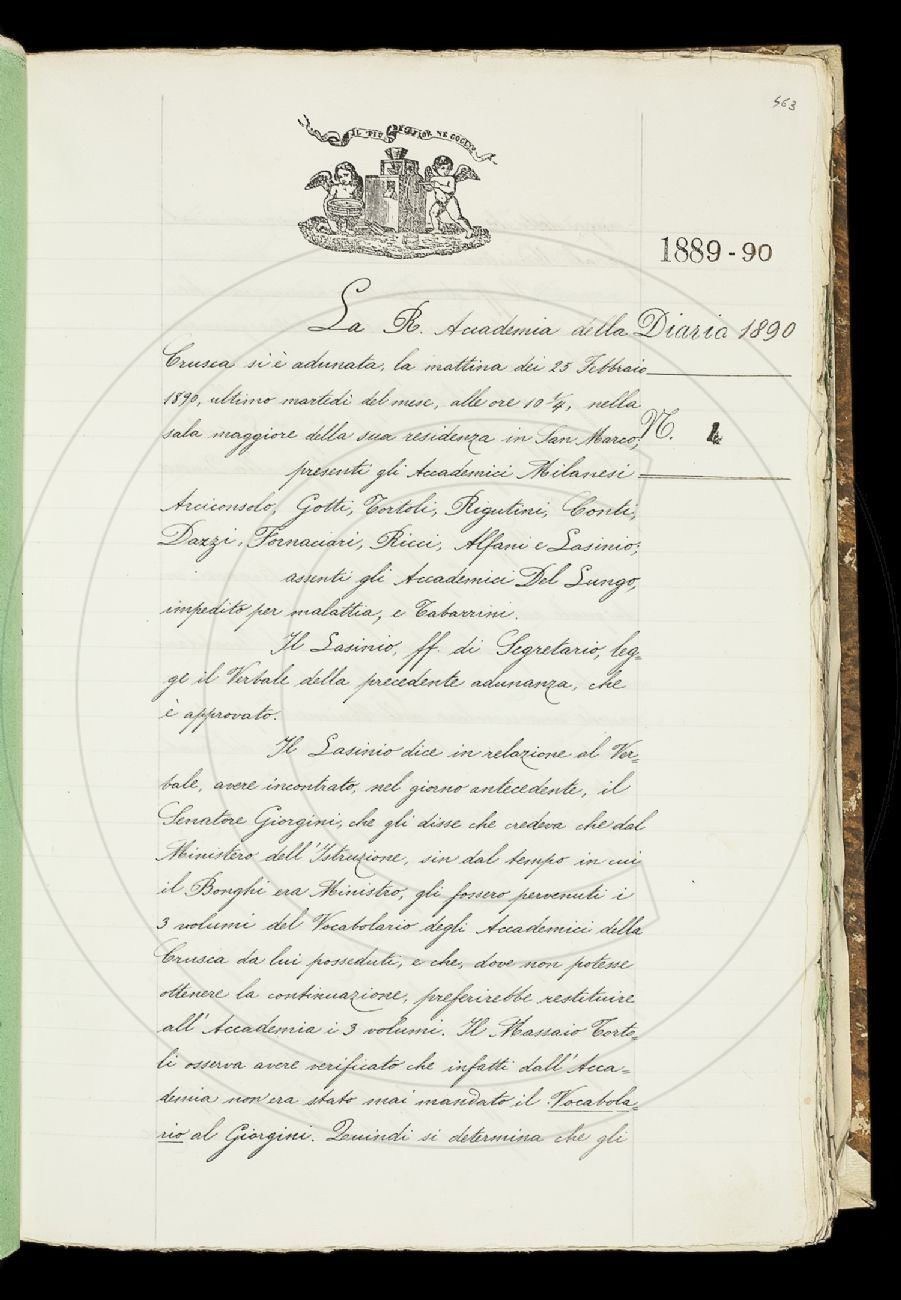 563
IL PIÙ BEL FIOR NE COGLIE
1889-90
La R. Accademia della
Diaria 1890
Crusca si è adunata, la mattina dei 25 Febbraio
1890, ultimo martedì del mese, alle ore 10 1/4, nella
sala maggiore della sua residenza in San Marco,
N. 1
presenti gli Accademici Milanesi
Arciconsolo, Gotti, Tortoli, Rigutini, Conti,
Dazzi, Fornaciari, Ricci, Alfani e Lasinio;
assenti gli Accademici Del Lungo,
impedito per malattia, e Tabarrini.
Il Lasinio, ff. di Segretario, leg=
ge il Verbale della precedente adunanza, che
è approvato.
Il Lasinio dice in relazione al Ver=
bale, avere incontrato, nel giorno antecedente, il
Senatore Giorgini, che gli disse che credeva che dal
Ministero dell'Istruzione, sin dal tempo in cui
il Bonghi era Ministro, gli fossero pervenuti i
3 volumi del Vocabolario degli Accademici della
Crusca da lui posseduti, e che, dove non potesse
ottenere la continuazione, preferirebbe restituire
all'Accademia i 3 volumi. Il Massaio Torto=
li osserva avere verificato che infatti dall'Acca=
demia non era stato mai mandato il Vocabola=
rio al Giorgini. Quindi si determina che gli